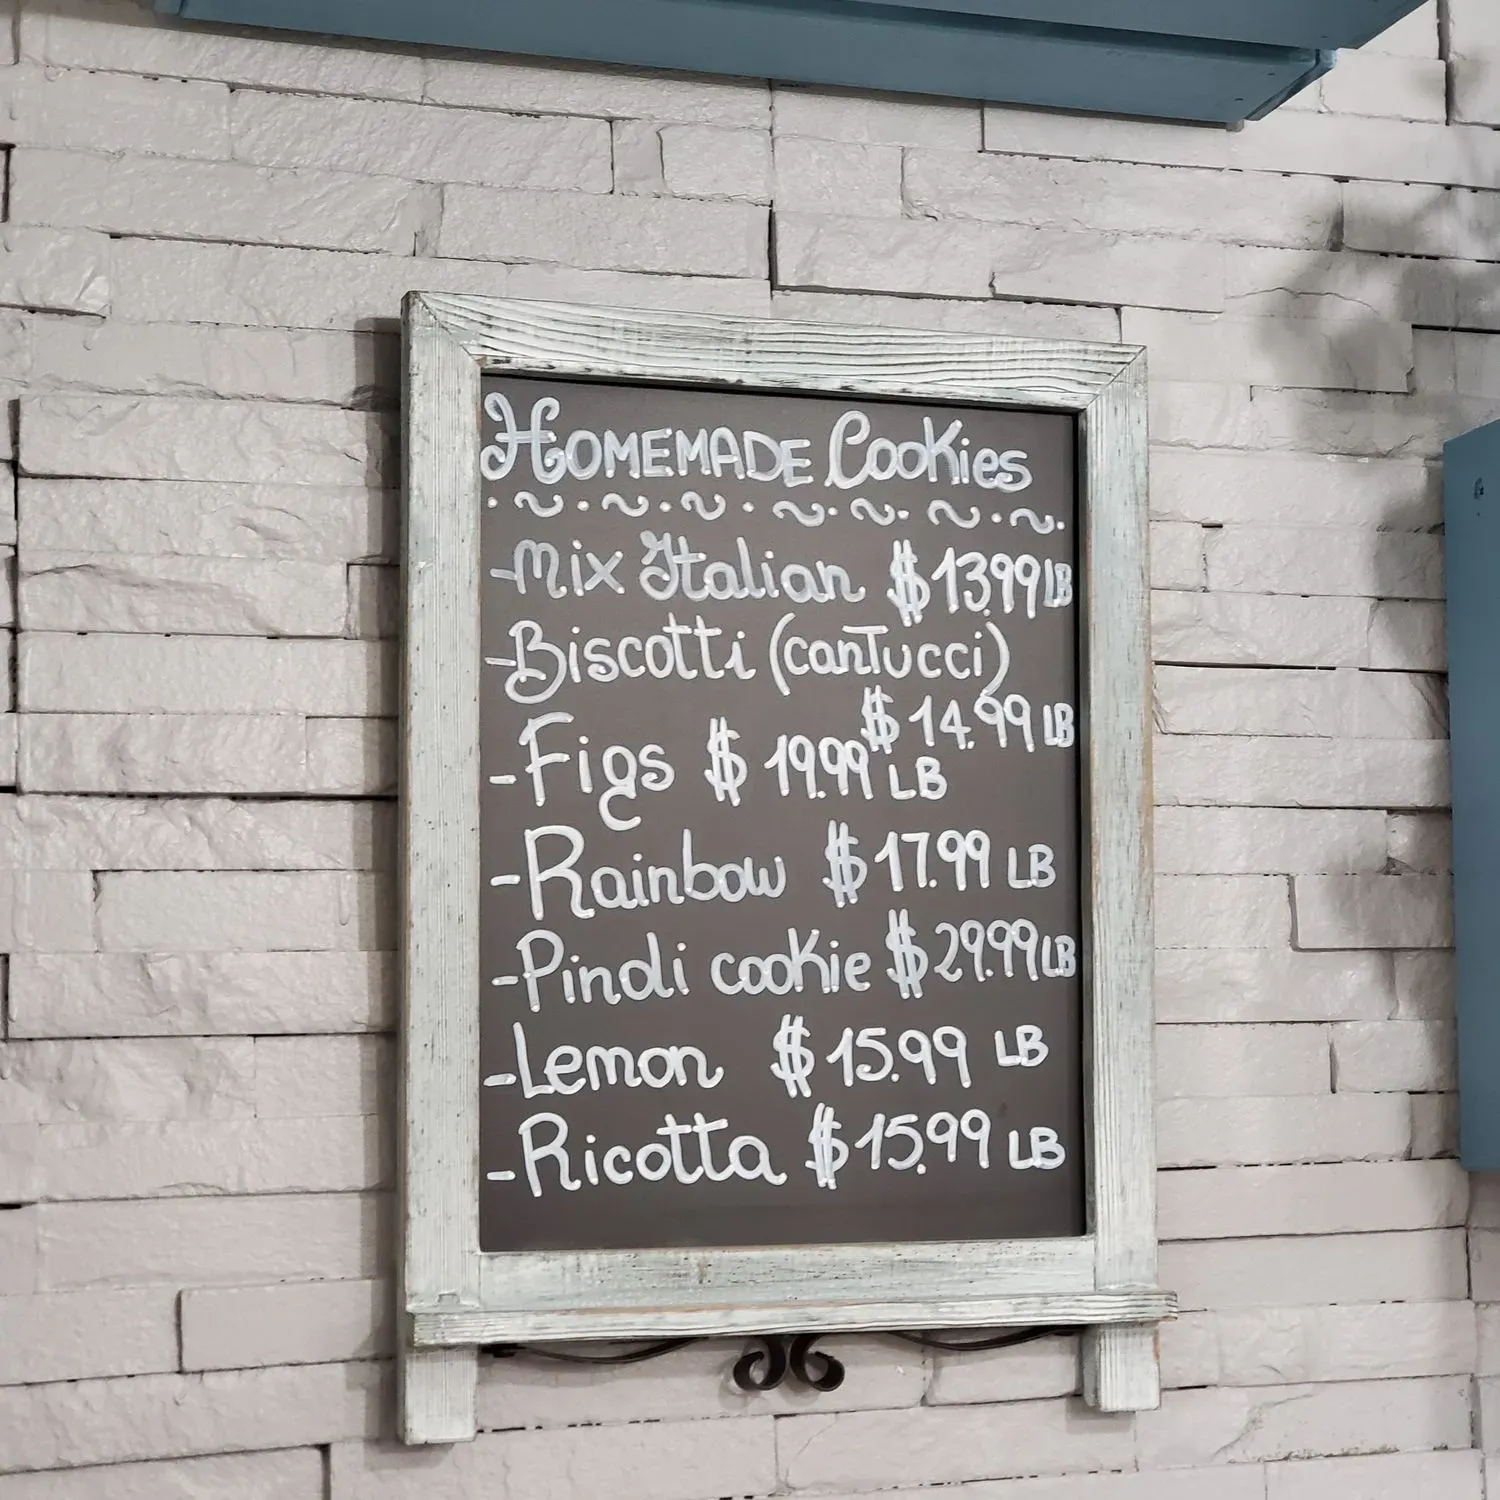 Homemade Cookies
-Mix Italian $13.99 LB
-Biscotti (canTucci)
$14.99 LB
-Figs $19.99 LB
-Rainbow $17.99 LB
-Pinoli cookie $29.99 LB
-Lemon $15.99 LB
-Ricotta $15.99 LB